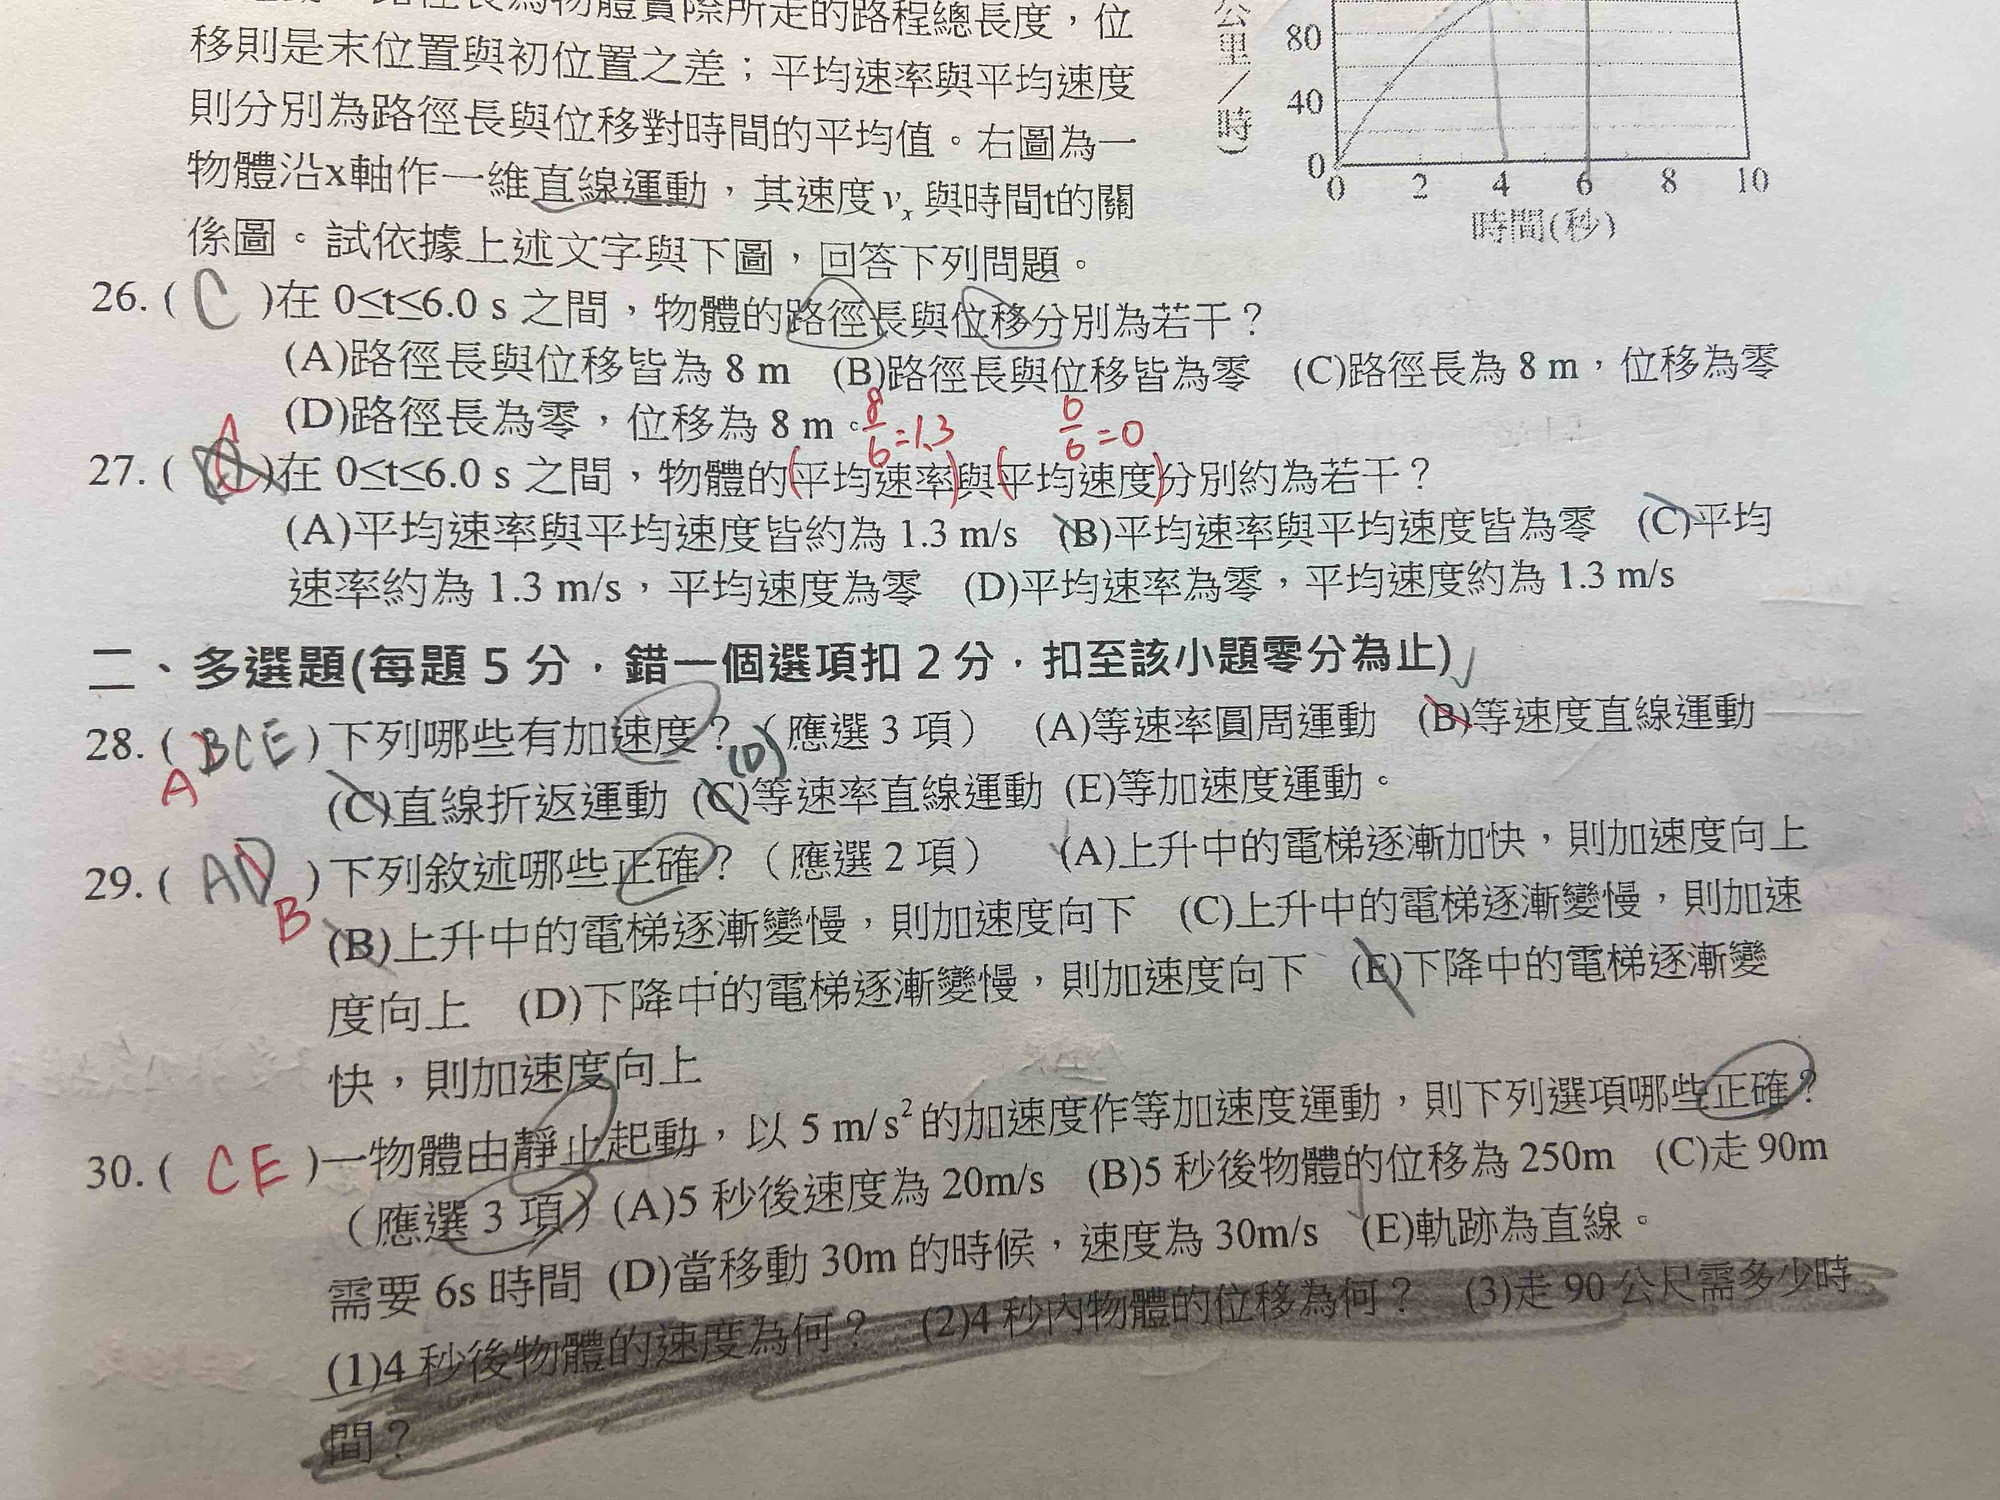 路徑長為物體實際所走的路程總長度，位
移則是末位置與初位置之差；平均速率與平均速度
則分別為路徑長與位移對時間的平均值。右圖為一
物體沿x軸作一維直線運動，其速度vx與時間t的關
係圖。試依據上述文字與下圖，回答下列問題。
公里/時)
80
40
0
0 2 4 6 8 10
時間(秒)
26. ( C )在 0≤t≤6.0 s 之間，物體的路徑長與位移分別為若干？
(A)路徑長與位移皆為 8 m (B)路徑長與位移皆為零 (C)路徑長為 8 m，位移為零
(D)路徑長為零，位移為 8 m。
8/6=1.3 0/6=0
A
27. ( )在 0≤t≤6.0 s 之間，物體的(平均速率)與(平均速度)分別約為若干？
(A)平均速率與平均速度皆約為 1.3 m/s (B)平均速率與平均速度皆為零 (C)平均
速率約為 1.3 m/s，平均速度為零 (D)平均速率為零，平均速度約為 1.3 m/s
二、多選題(每題 5 分，錯一個選項扣 2 分，扣至該小題零分為止)
28. ( BCE ) 下列哪些有加速度？（應選 3 項） (A)等速率圓周運動 (B)等速度直線運動
A
(D)
(C)直線折返運動 (C)等速率直線運動 (E)等加速度運動。
29. ( AD ) 下列敘述哪些正確？（應選 2 項） (A)上升中的電梯逐漸加快，則加速度向上
B
(B)上升中的電梯逐漸變慢，則加速度向下 (C)上升中的電梯逐漸變慢，則加速
度向上 (D)下降中的電梯逐漸變慢，則加速度向下 (E)下降中的電梯逐漸變
快，則加速度向上
30. ( CE )一物體由靜止起動，以 5 m/s² 的加速度作等加速度運動，則下列選項哪些正確？
（應選 3 項）(A)5 秒後速度為 20m/s (B)5 秒後物體的位移為 250m (C)走 90m
需要 6s 時間 (D)當移動 30m 的時候，速度為 30m/s (E)軌跡為直線。
(1)4 秒後物體的速度為何？ (2)4 秒內物體的位移為何？ (3)走 90 公尺需多少時
間？